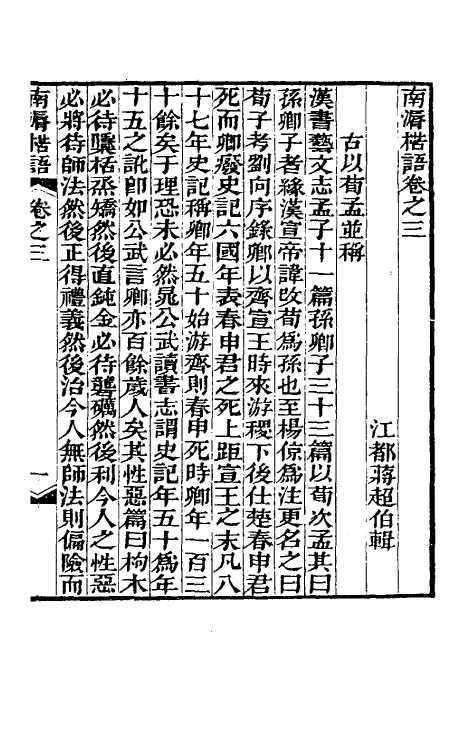 南漘楛語卷之三
江都蔣超伯輯
古以荀孟並稱
漢書藝文志孟子十一篇孫卿子三十三篇以荀次孟其曰
孫卿子者緣漢宣帝諱改荀爲孫也至楊倞爲注更名之曰
荀子考劉向序錄卿以齊宣王時來游稷下後仕楚春申君
死而卿廢史記六國年表春申君之死上距宣王之末凡八
十七年史記稱卿年五十始游齊則春申死時卿年一百三
十餘矣于理恐未必然晁公武讀書志謂史記年五十爲年
十五之訛卽如公武言卿亦百餘歲人矣其性惡篇曰枸木
必待檃栝烝矯然後直鈍金必待礱礪然後利今人之性惡
必將待師法然後正得禮義然後治今人無師法則偏險而
南漘楛語 卷之三 一